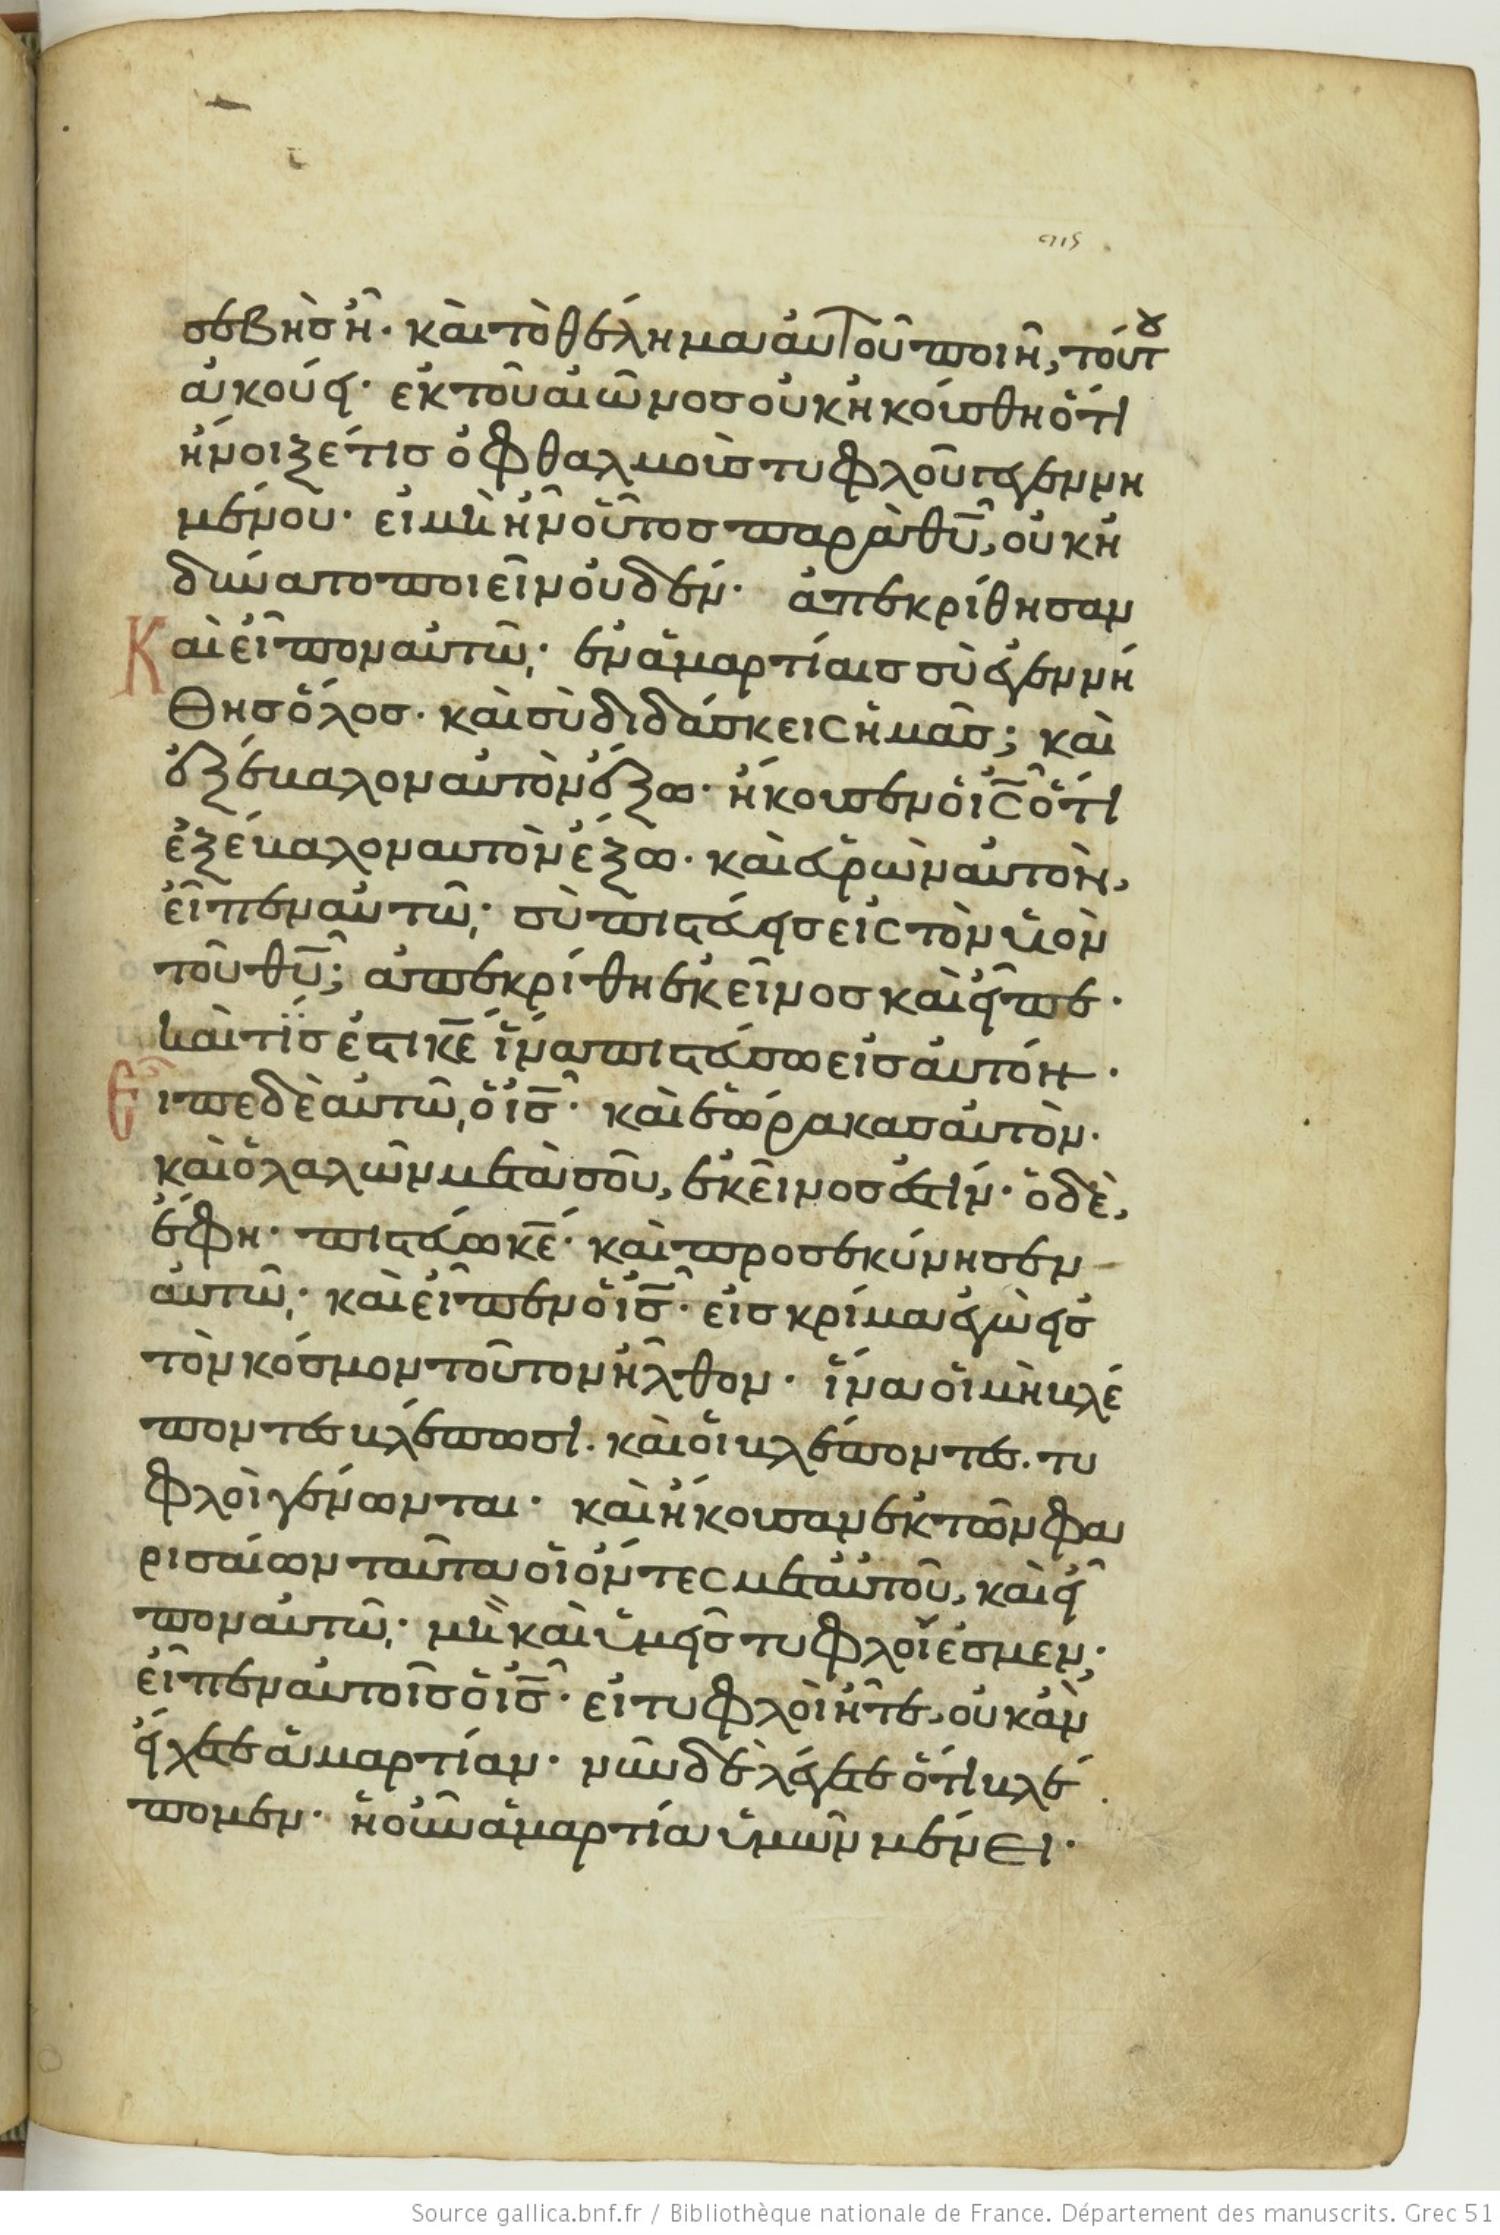 σεβὴς ἦ· καὶ τὸ θέλημα αὐτοῦ ποιῆ, τούτου
ἀκούει· ἐκ τοῦ αἰῶνος οὐκ ἠκούσθη ὅτι
ἤνοιξέ τις ὀφθαλμοὺς τυφλοῦ γεγεννη
μένου· εἰ μὴ ἦν οὗτος παρὰ θυ, οὐκ ἠ
δύνατο ποιεῖν οὐδέν· ἀπεκρίθησαν
Καὶ εἶπον αὐτῶ· ἐν ἁμαρτίαις σὺ ἐγεννή
θης ὅλος· καὶ σὺ διδάσκεις ἡμᾶς; καὶ
ἐξέβαλον αὐτὸν ἔξω· ἤκουσεν ὁ ις ὅτι
ἐξέβαλον αὐτὸν ἔξω· καὶ εὑρὼν αὐτὸν,
εἶπεν αὐτῶ· σὺ πιστεύεις εἰς τὸν υἱὸν
τοῦ θυ; ἀπεκρίθη ἐκεῖνος καὶ εἶπε·
καὶ τίς ἐστι κε ἵνα πιστεύσω εἰς αὐτόν·
Εἶπε δὲ αὐτῶ, ὁ ις· καὶ ἑώρακας αὐτὸν·
καὶ ὁ λαλῶν μετὰ σοῦ, ἐκεῖνος ἐστίν· ὁ δὲ,
ἔφη· πιστεύω κε· καὶ προσεκύνησεν
αὐτῶ· καὶ εἶπεν ὁ ις· εἰς κρίμα ἐγὼ εἰς
τὸν κόσμον τοῦτον ἦλθον· ἵνα οἱ μὴ βλέ
ποντες βλέπωσι. καὶ οἱ βλέποντες. τυ
φλοὶ γένωνται· καὶ ἤκουσαν ἐκ τῶν φα
ρισαίων ταῦτα οἱ ὄντες μετ αὐτοῦ, καὶ εἶ
πον αὐτῶ· μὴ καὶ ὑμεῖς τυφλοί ἐσμεν;
εἶπεν αὐτοῖς ὁ ις· εἰ τυφλοὶ ἦτε, οὐκ ἂν
εἴχετε ἁμαρτίαν· νῦν δὲ λέγετε ὅτι βλέ
πομεν· ἡ οὖν ἁμαρτία ὑμῶν μένει·
Source gallica.bnf.fr / Bibliothèque nationale de France. Département des manuscrits. Grec 51